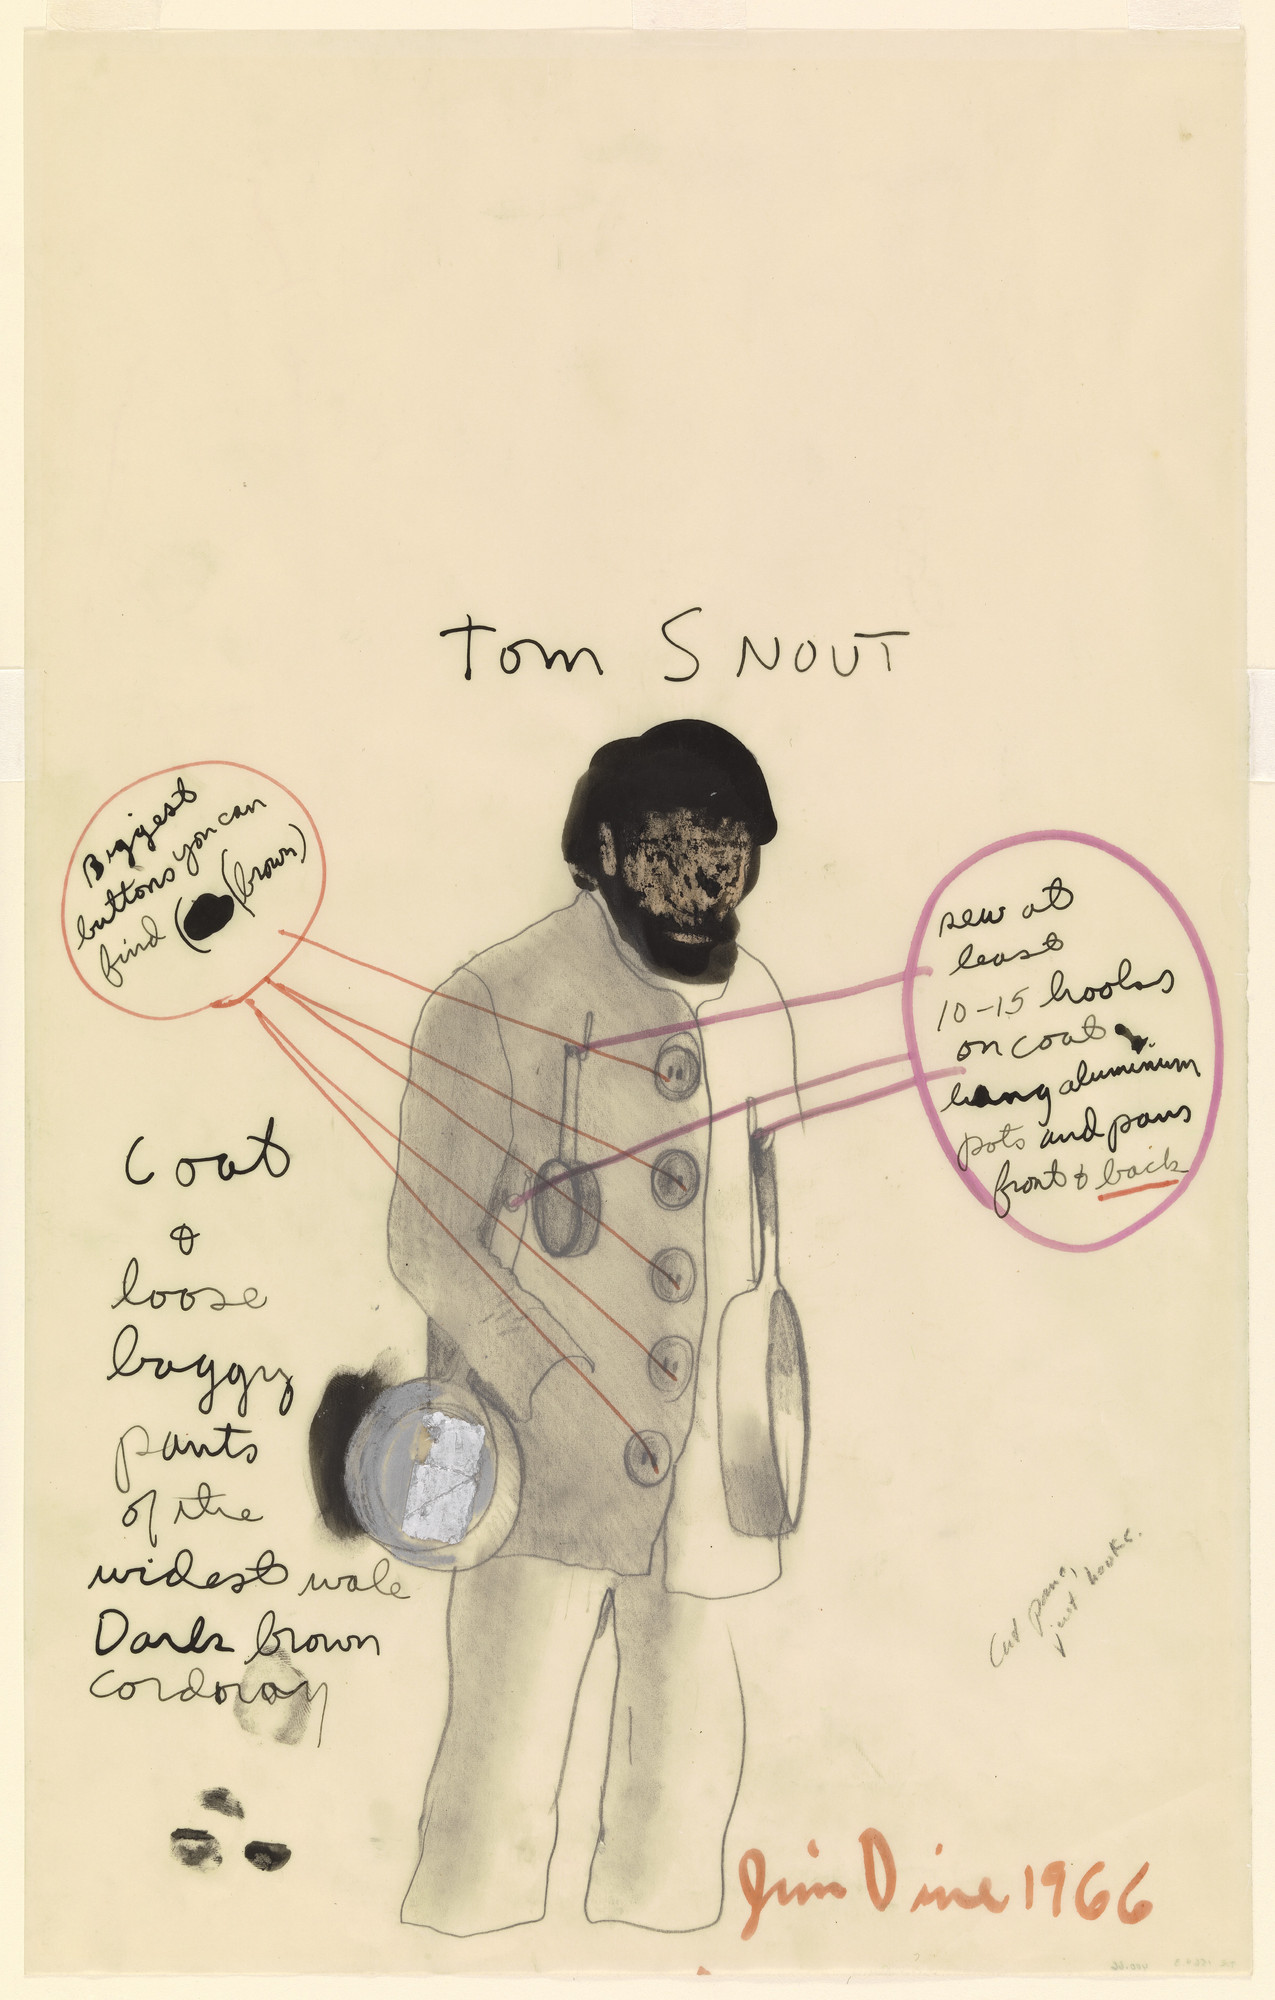 Tom SNOUT
Biggest
buttons you can
find (brown)
sew at
least
10-15 hooks
on coat
hang aluminum
pots and pans
front & back
Coat
&
loose
baggy
pants
of the
widest wale
Dark brown
cordoroy
Cut pans,
just hooks.
Jim Dine 1966